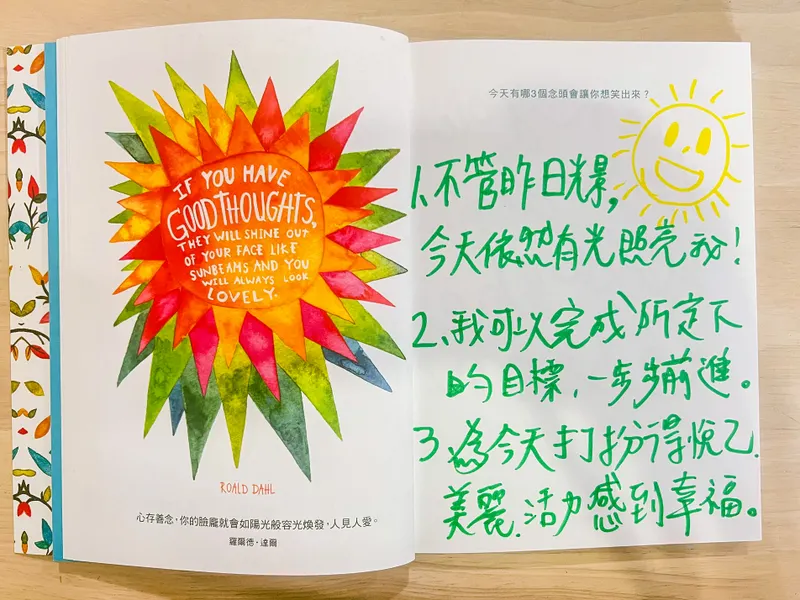 IF YOU HAVE
GOOD THOUGHTS,
THEY WILL SHINE OUT
OF YOUR FACE LIKE
SUNBEAMS AND YOU
WILL ALWAYS LOOK
LOVELY.
ROALD DAHL
心存善念，你的臉龐就會如陽光般容光煥發，人見人愛。
羅爾德・達爾
今天有哪3個念頭會讓你想笑出來？
1.不管昨日,
今天依然有光照亮我！
2、我可以完成所定下
的目標，一步步前進。
3.為今天打扮得悅己.
美麗.活力感到幸福。